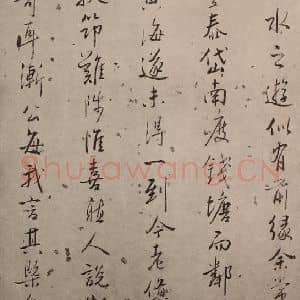 水之遊似有前緣余
泰岱南渡錢塘而鄰
海遂未得一到今老
筇難陟惟喜聽人說
耳漸公每我言其槩
Shufawang.CN